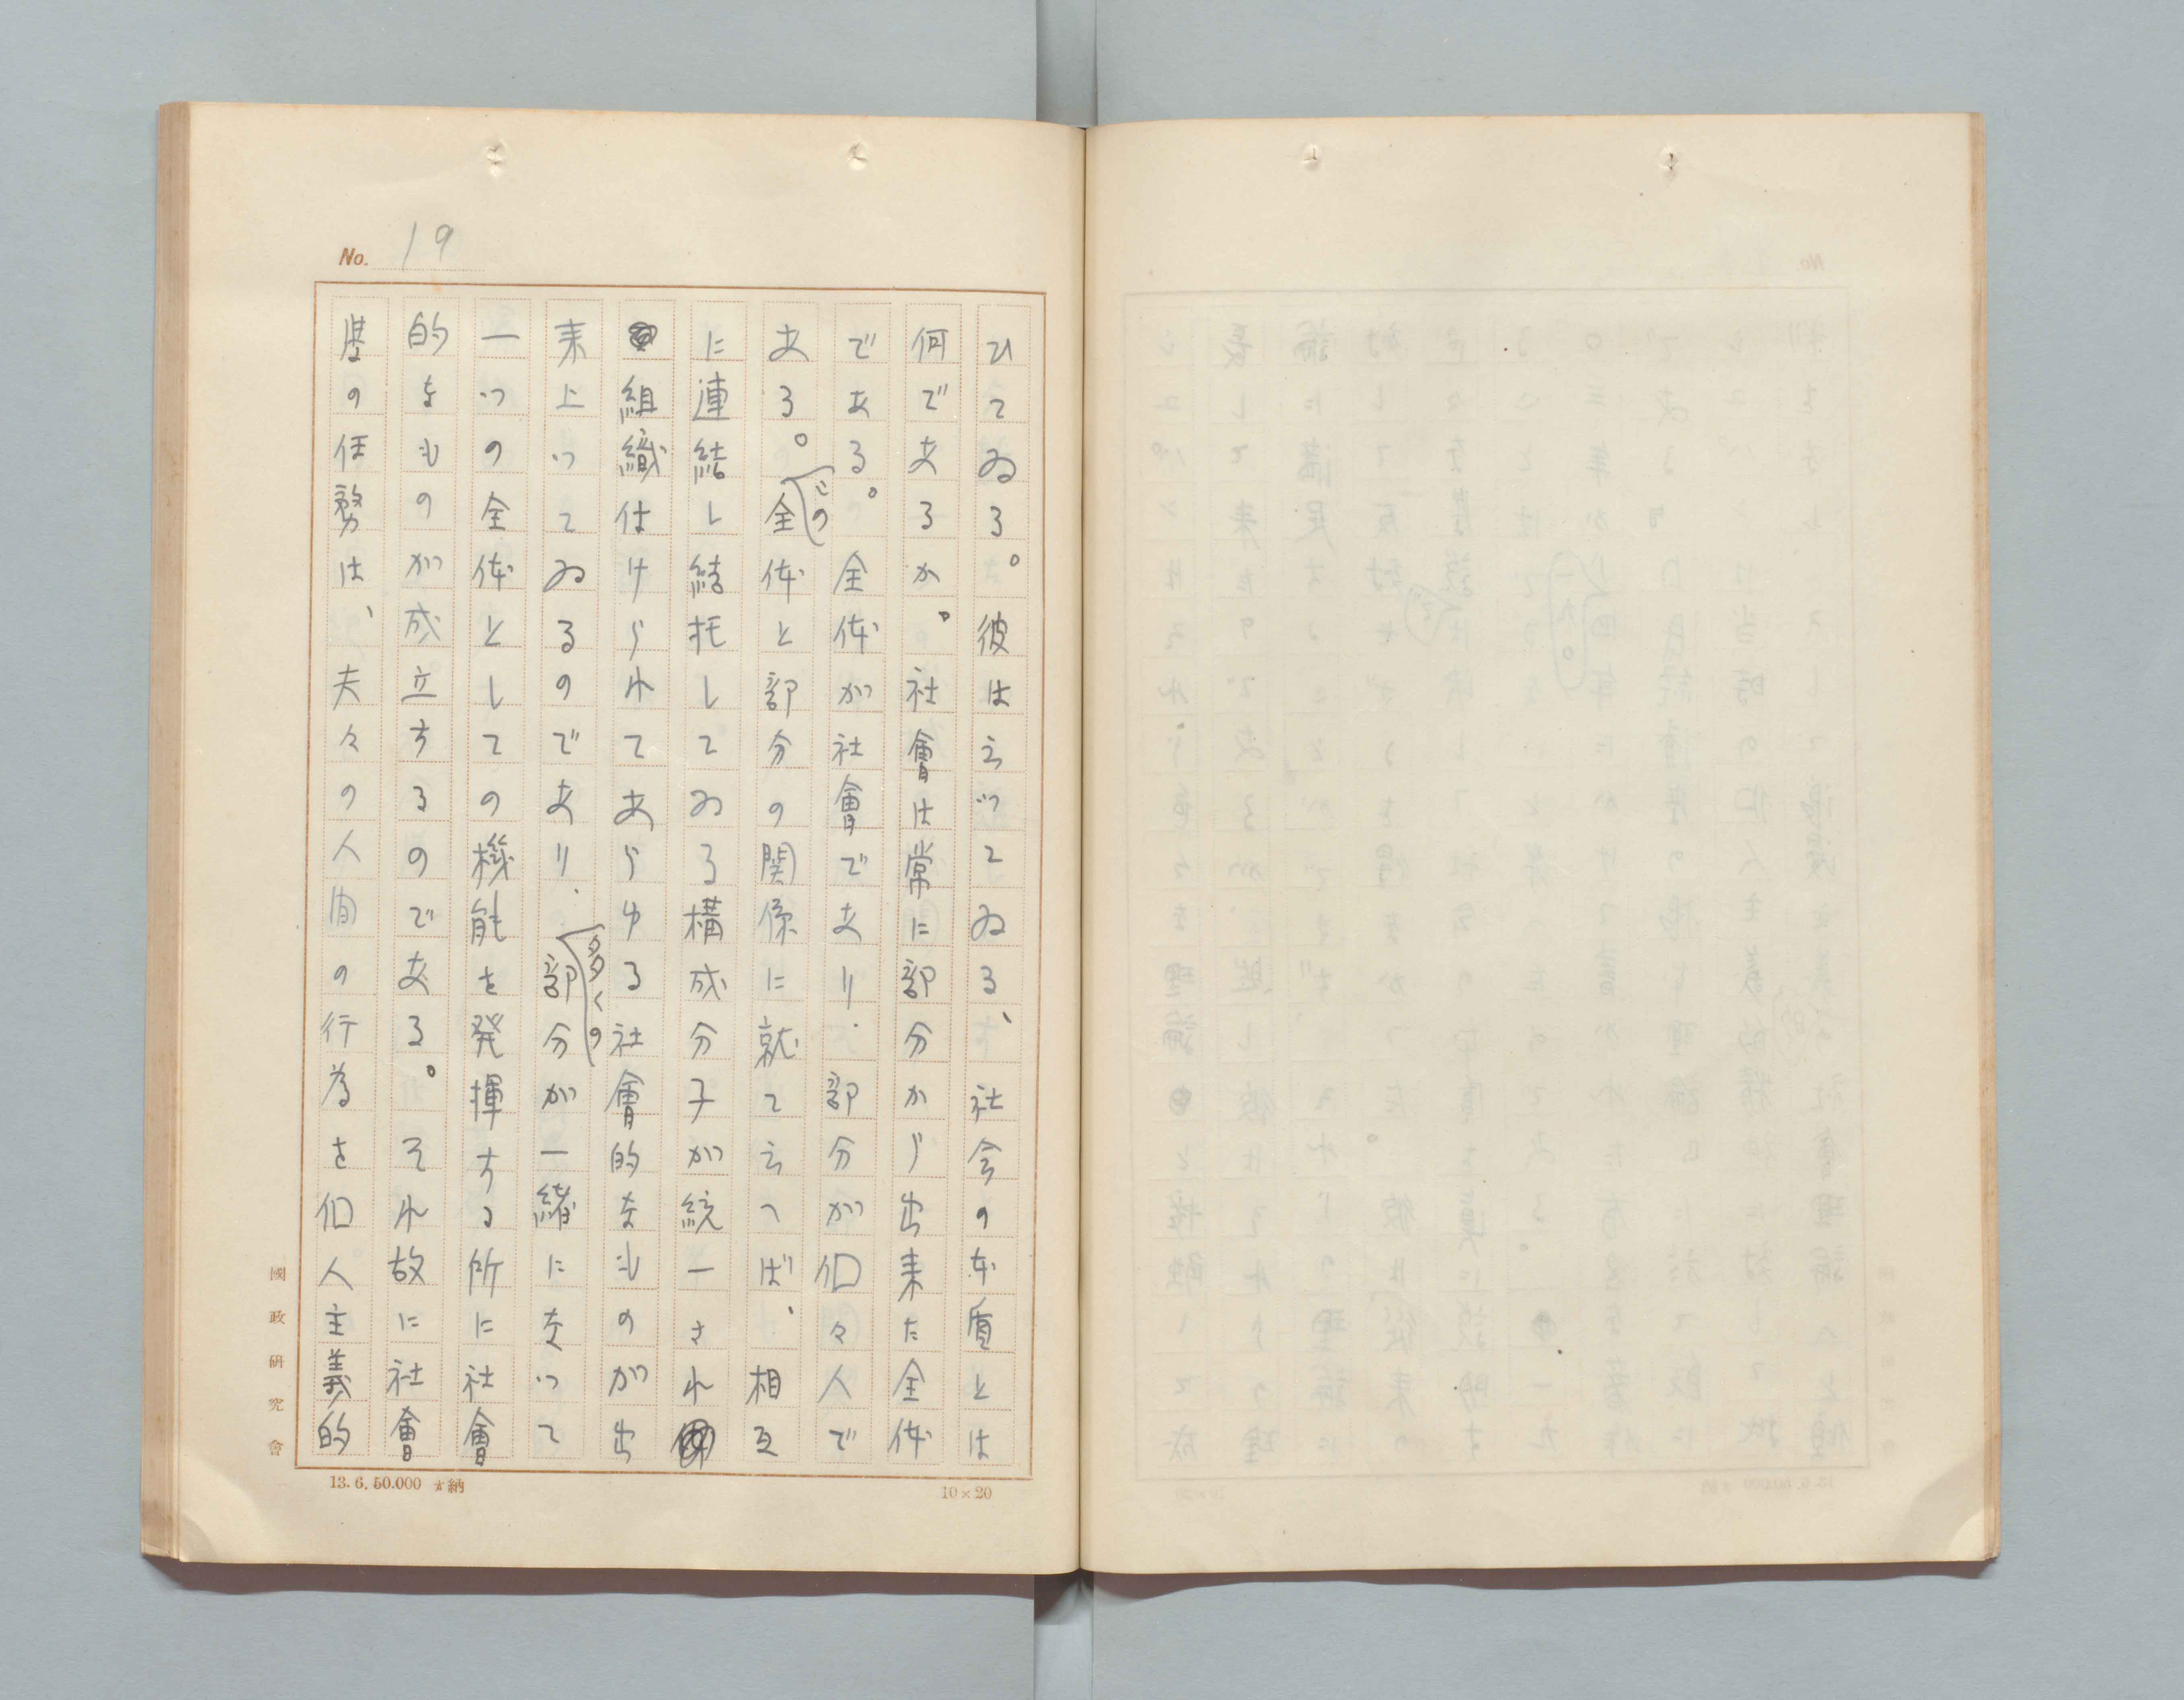 No. 19
ひてゐる。彼は云つてゐる、社会の本質とは
何であるか。社會は常に部分から出来た全体
である。全体が社會であり、部分が個々人で
ある。この全体と部分の関係に就て云へば、相互
に連結し結托してゐる構成分子が統一され
組織付けられてあらゆる社會的なものが出
来上つてゐるのであり、多くの部分が一緒になつて
一つの全体としての機能を発揮する所に社會
的なものが成立するのである。それ故に社會
学の任務は、夫々の人間の行為を個人主義的
國政研究會
13. 6. 50.000 納
10×20